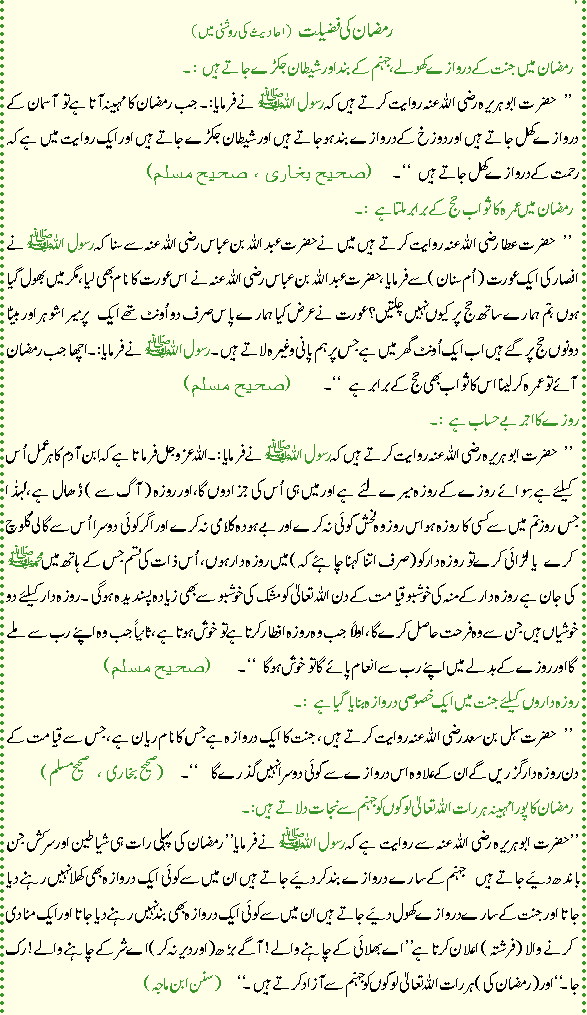 رمضان کی فضیلت (احادیث کی روشنی میں)
رمضان میں جنت کے دروازے کھولے، جہنم کے بند اور شیطان جکڑے جاتے ہیں :۔
’’ حضرت ابو ہریرہ رضی اللہ عنہ روایت کرتے ہیں کہ رسول اللہ ﷺ نے فرمایا:۔ جب رمضان کا مہینہ آتا ہے تو آسمان کے
دروازے کھل جاتے ہیں اور دوزخ کے دروازے بند ہو جاتے ہیں اور شیطان جکڑے جاتے ہیں اور ایک روایت میں ہے کہ
رحمت کے دروازے کھل جاتے ہیں ‘‘۔ (صحیح بخاری ، صحیح مسلم)
رمضان میں عمرہ کا ثواب حج کے برابر ملتا ہے :۔
’’ حضرت عطا رضی اللہ عنہ روایت کرتے ہیں میں نے حضرت عبد اللہ بن عباس رضی اللہ عنہ سے سنا کہ رسول اللہ ﷺ نے
انصار کی ایک عورت (اُم سنان) سے فرمایا ،حضرت عبد اللہ بن عباس رضی اللہ عنہ نے اس عورت کا نام بھی لیا ،مگر میں بھول گیا
ہوں ،تم ہمارے ساتھ حج پر کیوں نہیں چلتیں؟ عورت نے عرض کیا ہمارے پاس صرف دو اُونٹ تھے ایک پر میرا شوہر اور بیٹا
دونوں حج پر گئے ہیں اب ایک اُونٹ گھر میں ہے جس پر ہم پانی وغیرہ لاتے ہیں ۔ رسول اللہ ﷺ نے فرمایا:۔ اچھا جب رمضان
آئے تو عمرہ کر لینا اس کا ثواب بھی حج کے برابر ہے ‘‘۔ (صحیح مسلم)
روزے کا اجر بے حساب ہے :۔
’’ حضرت ابو ہریرہ رضی اللہ عنہ روایت کرتے ہیں کہ رسول اللہ ﷺ نے فرمایا:۔ اللہ عزوجل فرماتا ہے کہ ابن آدم کا ہر عمل اُس
کیلئے ہے سوائے روزے کے روزہ میرے لئے ہے اور میں ہی اُس کی جزا دوں گا ،اور روزہ (آگ سے) ڈھال ہے ،لہٰذا
جس روز تم میں سے کسی کا روزہ ہو اس روز وہ فحش گوئی نہ کرے اور بے ہودہ کلامی نہ کرے اور اگر کوئی دوسرا اُس سے گالی گلوچ
کرے یا لڑائی کرے تو روزہ دار کو (صرف اتنا کہنا چاہئے کہ) میں روزہ دار ہوں ،اُس ذات کی قسم جس کے ہاتھ میں محمد ﷺ
کی جان ہے روزہ دار کے منہ کی خوشبو قیامت کے دن اللہ تعالیٰ کو مشک کی خوشبو سے بھی زیادہ پسندیدہ ہوگی ۔ روزہ دار کیلئے دو
خوشیاں ہیں جن سے وہ فرحت حاصل کرے گا ،اولاً جب وہ روزہ افطار کرتا ہے تو خوش ہوتا ہے ،ثانیاً جب وہ اپنے رب سے ملے
گا اور روزے کے بدلے میں اپنے رب سے انعام پائے گا تو خوش ہوگا ‘‘۔ (صحیح مسلم)
روزہ داروں کیلئے جنت میں ایک خصوصی دروازہ بنایا گیا ہے :۔
’’ حضرت سہل بن سعد رضی اللہ عنہ روایت کرتے ہیں ،جنت کا ایک دروازہ ہے جس کا نام ریان ہے ،جس سے قیامت کے
دن روزہ دار گزریں گے ان کے علاوہ اس دروازے سے کوئی دوسرا نہیں گذرے گا ‘‘۔ (صحیح بخاری ، صحیح مسلم)
رمضان کا پورا مہینہ ہر رات اللہ تعالیٰ لوگوں کو جہنم سے نجات دلاتے ہیں:۔
’’حضرت ابو ہریرہ رضی اللہ عنہ سے روایت ہے کہ رسول اللہ ﷺ نے فرمایا’’ رمضان کی پہلی رات ہی شیاطین اور سرکش جن
باندھ دیئے جاتے ہیں جہنم کے سارے دروازے بند کر دیئے جاتے ہیں ان میں سے کوئی ایک دروازہ بھی کھلا نہیں رہنے دیا
جاتا اور جنت کے سارے دروازے کھول دیئے جاتے ہیں ان میں سے کوئی ایک دروازہ بھی بند نہیں رہنے دیا جاتا اور ایک منادی
کرنے والا (فرشتہ) اعلان کرتا ہے’’ اے بھلائی کے چاہنے والے! آگے بڑھ (اور دیر نہ کر) اے شر کے چاہنے والے! رک
جا ۔‘‘ اور (رمضان کی) ہر رات اللہ تعالیٰ لوگوں کو جہنم سے آزاد کرتے ہیں ۔‘‘ (سنن ابن ماجہ)